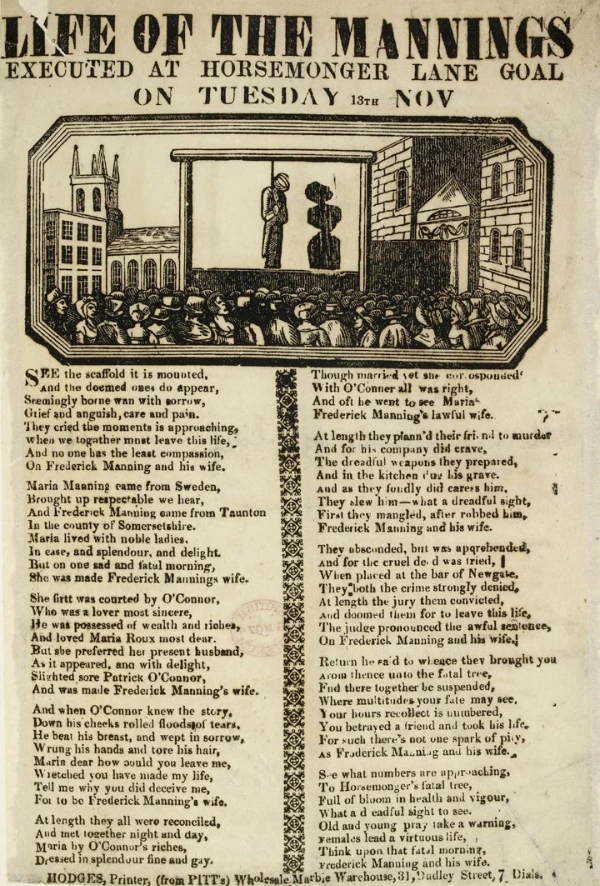 LIFE OF THE MANNINGS
EXECUTED AT HORSEMONGER LANE GOAL
ON TUESDAY 13TH NOV
SEE the scaffold it is mounted,
And the doomed ones do appear,
Seemingly borne wan with sorrow,
Grief and anguish, care and pain.
They cried the moments is approaching,
When we together must leave this life,
And no one has the least compassion,
On Frederick Manning and his wife.
Maria Manning came from Sweden,
Brought up respectable we hear,
And Frederick Manning came from Taunton
In the county of Somersetshire.
Maria lived with noble ladies.
In ease, and splendour, and delight.
But on one sad and fatal morning,
She was made Frederick Mannings wife.
She first was courted by O'Connor,
Who was a lover most sincere,
He was possessed of wealth and riches,
And loved Maria Roux most dear.
But she preferred her present husband,
As it appeared, and with delight,
Slighted sore Patrick O'Connor,
And was made Frederick Manning's wife.
And when O'Connor knew the story,
Down his cheeks rolled floods of tears,
He beat his breast, and wept in sorrow,
Wrung his hands and tore his hair,
Maria dear how could you leave me,
Wretched you have made my life,
Tell me why you did deceive me,
For to be Frederick Manning's wife.
At length they all were reconciled,
And met together night and day,
Maria by O'Connor's riches,
Dressed in splendour fine and gay.
Though married yet she corosponded
With O'Conner all was right,
And oft he went to see Maria
Frederick Manning's lawful wife.
At length they plann'd their friend to murder
And for his company did crave,
The dreadful weapons they prepared,
And in the kitchen dug his grave.
And as they fondly did caress him,
They slew him—what a dreadful sight,
First they mangled, after robbed him,
Frederick Manning and his wife.
They absconded, but was apprehended,
And for the cruel deed was tried,
When placed at the bar of Newgate.
They both the crime strongly denied,
At length the jury them convicted,
And doomed them for to leave this life,
The judge pronounced the awful sentence,
On Frederick Manning and his wife.
Return he said to whence they brought you
From thence unto the fatal tree,
And there together be suspended,
Where multitudes your fate may see.
Your hours recollect is numbered,
You betrayed a friend and took his life,
For such there's not one spark of pity,
As Frederick Manning and his wife.
See what numbers are approaching,
To Horsemonger's fatal tree,
Full of bloom in health and vigour,
What a dreadful sight to see.
Old and young pray take a warning,
Females lead a virtuous life,
Think upon that fatal morning,
Frederick Manning and his wife.
HODGES, Printer, (from PITT's) Wholesale Marble Warehouse, 31, Dudley Street, 7 Dials.